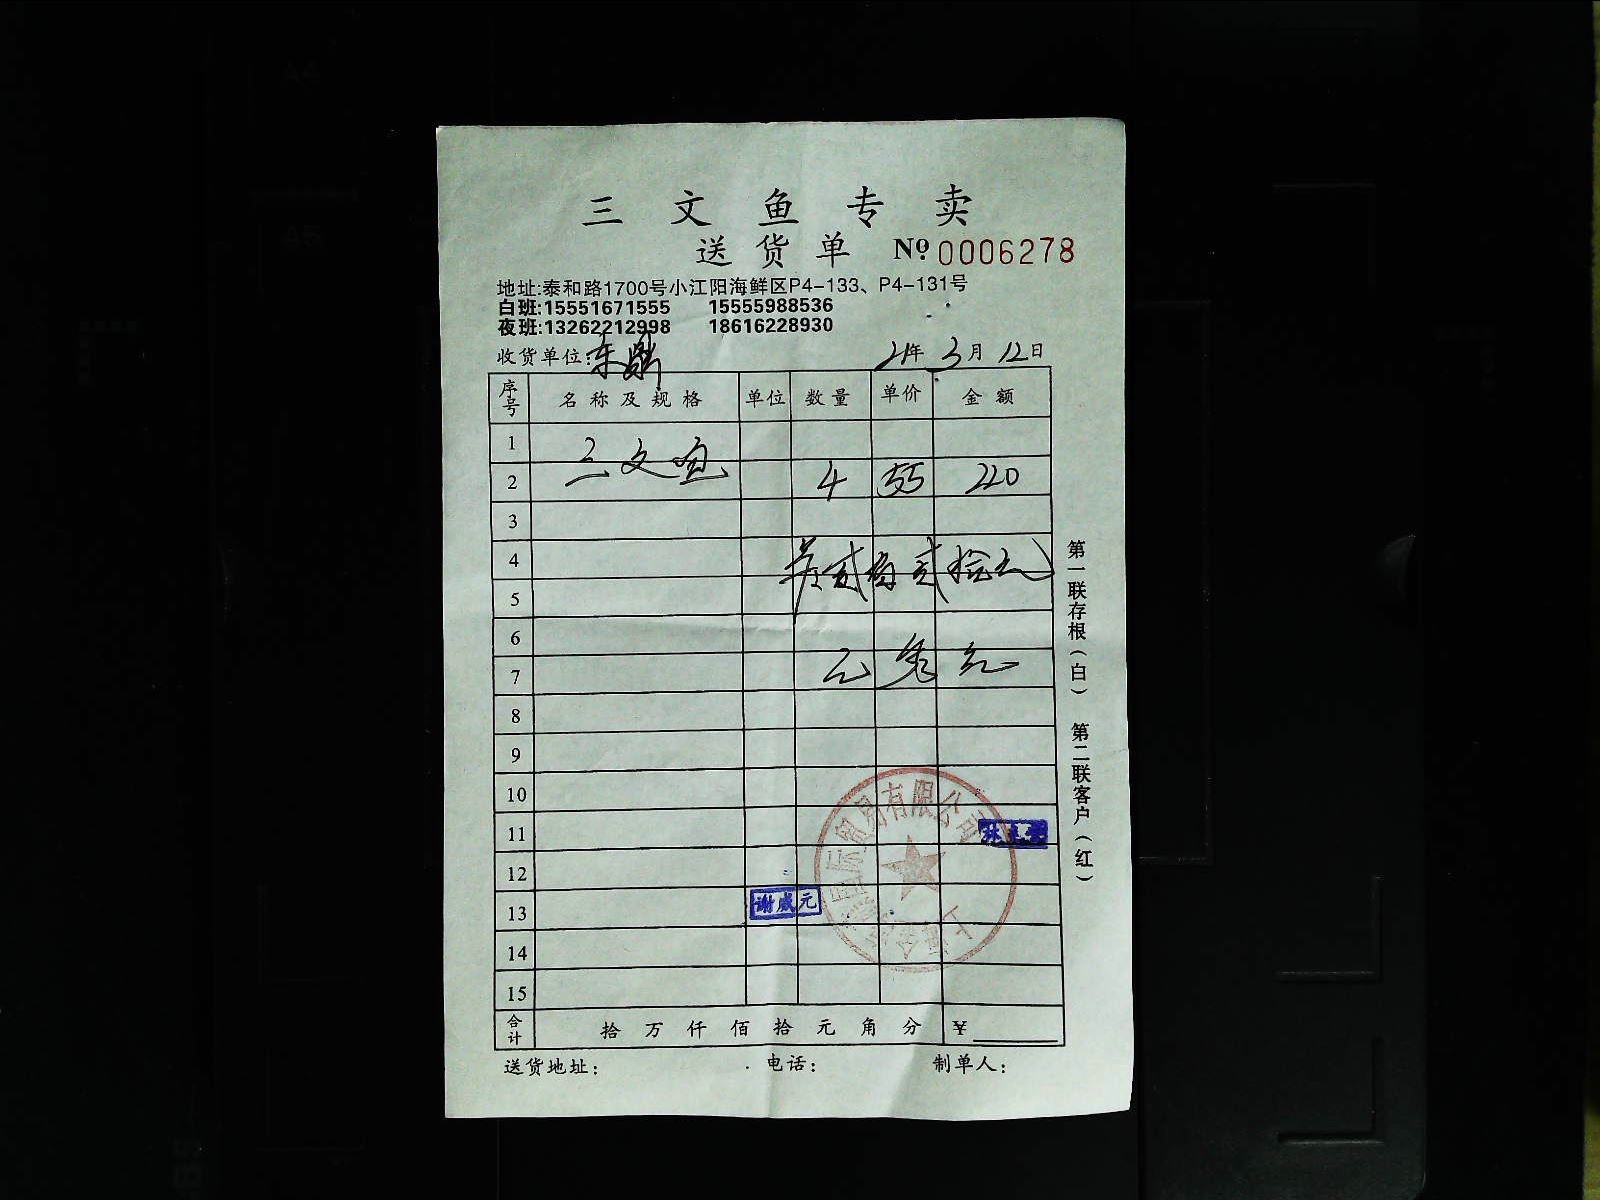 三文鱼专卖
送货单 № 0006278
地址:泰和路1700号小江阳海鲜区P4-133、P4-131号
白班:15551671555 15555988536
夜班:13262212998 18616228930
收货单位: 东鼎 21年 3月 12日
序号 名称及规格 单位 数量 单价 金额
1 三文鱼
2 4 55 220
3
4 贰佰贰拾元
5
6
7
8
9
10
11
12
13 谢咸元
14
15
合计 拾 万 仟 佰 拾 元 角 分 ¥
送货地址: 电话: 制单人:
第一联存根(白) 第二联客户(红)
贸易有限公司